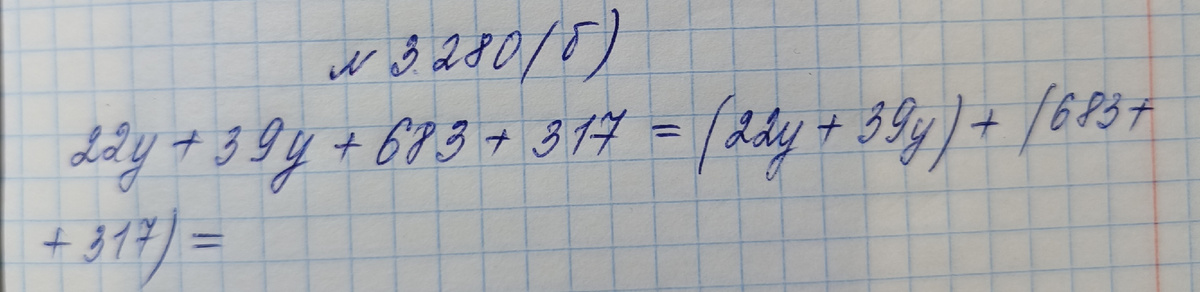 № 3.280(б)
22y + 39y + 683 + 317 = (22y + 39y) + (683 +
+ 317) =